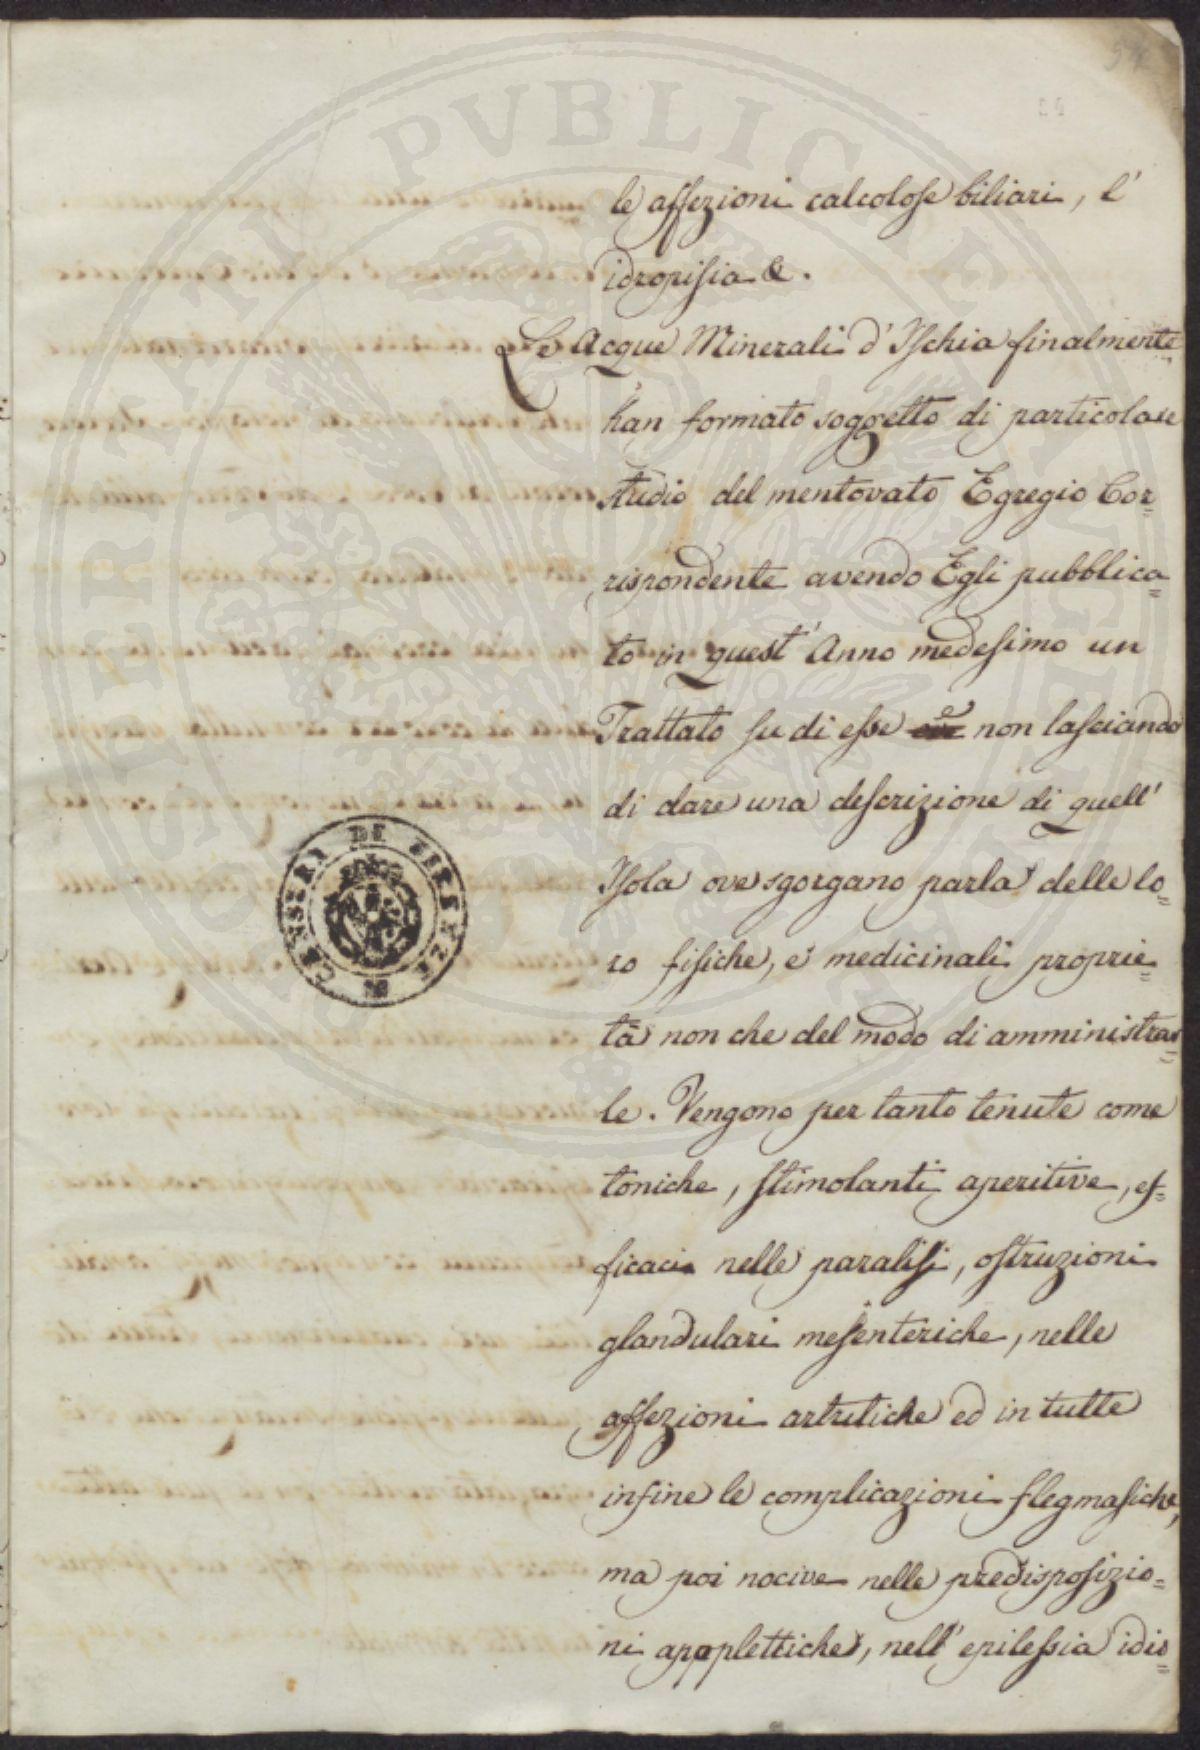 le affezioni calcolose biliari, l'
idropisia &.
Le Acque Minerali d'Ischia finalmente
han formato soggetto di particolare
studio del mentovato Egregio Cor=
rispondente avendo Egli pubblica=
to in quest'Anno medesimo un
Trattato su di esse e non lasciando
di dare una descrizione di quell'
Isola ove sgorgano parla delle lo=
ro fisiche, e medicinali proprie=
tà non che del modo di amministrar=
le. Vengono per tanto tenute come
toniche, stimolanti aperitive, ef=
ficaci nelle paralisi, ostruzioni
glandulari mesenteriche, nelle
affezioni artritiche ed in tutte
infine le complicazioni flegmasiche,
ma poi nocive nelle predisposizio=
ni apoplettiche, nell'epilessia idio=
CRVSERI DI FIRENZE
PROSPERITATI PVBLICAE AVGENDAE